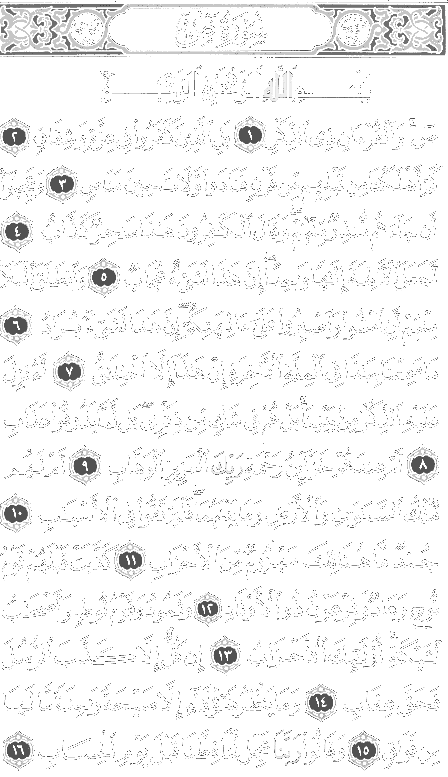 سُورَةُ صٓ
بِسْمِ ٱللَّهِ ٱلرَّحْمَـٰنِ ٱلرَّحِيمِ
صٓ وَٱلْقُرْءَانِ ذِى ٱلذِّكْرِ ١ بَلِ ٱلَّذِينَ كَفَرُوا۟ فِى عِزَّةٍ وَشِقَاقٍ ٢
كَمْ أَهْلَكْنَا مِن قَبْلِهِم مِّن قَرْنٍ فَنَادَوا۟ وَّلَاتَ حِينَ مَنَاصٍ ٣ وَعَجِبُوٓا۟
أَن جَآءَهُم مُّنذِرٌ مِّنْهُمْ ۖ وَقَالَ ٱلْكَـٰفِرُونَ هَـٰذَا سَـٰحِرٌ كَذَّابٌ ٤
أَجَعَلَ ٱلْـَٔالِهَةَ إِلَـٰهًا وَٰحِدًا ۖ إِنَّ هَـٰذَا لَشَىْءٌ عُجَابٌ ٥ وَٱنطَلَقَ ٱلْمَلَأُ
مِنْهُمْ أَنِ ٱمْشُوا۟ وَٱصْبِرُوا۟ عَلَىٰٓ ءَالِهَتِكُمْ ۖ إِنَّ هَـٰذَا لَشَىْءٌ يُرَادُ ٦
مَا سَمِعْنَا بِهَـٰذَا فِى ٱلْمِلَّةِ ٱلْـَٔاخِرَةِ إِنْ هَـٰذَآ إِلَّا ٱخْتِلَـٰقٌ ٧ أَءُنزِلَ
عَلَيْهِ ٱلذِّكْرُ مِنۢ بَيْنِنَا ۚ بَلْ هُمْ فِى شَكٍّ مِّن ذِكْرِى ۖ بَل لَّمَّا يَذُوقُوا۟ عَذَابِ
٨ أَمْ عِندَهُمْ خَزَآئِنُ رَحْمَةِ رَبِّكَ ٱلْعَزِيزِ ٱلْوَهَّابِ ٩ أَمْ لَهُم
مُّلْكُ ٱلسَّمَـٰوَٰتِ وَٱلْأَرْضِ وَمَا بَيْنَهُمَا ۖ فَلْيَرْتَقُوا۟ فِى ٱلْأَسْبَـٰبِ ١٠
جُندٌ مَّا هُنَالِكَ مَهْزُومٌ مِّنَ ٱلْأَحْزَابِ ١١ كَذَّبَتْ قَبْلَهُمْ قَوْمُ
نُوحٍ وَعَادٌ وَفِرْعَوْنُ ذُو ٱلْأَوْتَادِ ١٢ وَثَمُودُ وَقَوْمُ لُوطٍ وَأَصْحَـٰبُ
لْـَٔيْكَةِ ۚ أُو۟لَـٰٓئِكَ ٱلْأَحْزَابُ ١٣ إِن كُلٌّ إِلَّا كَذَّبَ ٱلرُّسُلَ
فَحَقَّ عِقَابِ ١٤ وَمَا يَنظُرُ هَـٰٓؤُلَآءِ إِلَّا صَيْحَةً وَٰحِدَةً مَّا لَهَا
مِن فَوَاقٍ ١٥ وَقَالُوا۟ رَبَّنَا عَجِّل لَّنَا قِطَّنَا قَبْلَ يَوْمِ ٱلْحِسَابِ ١٦